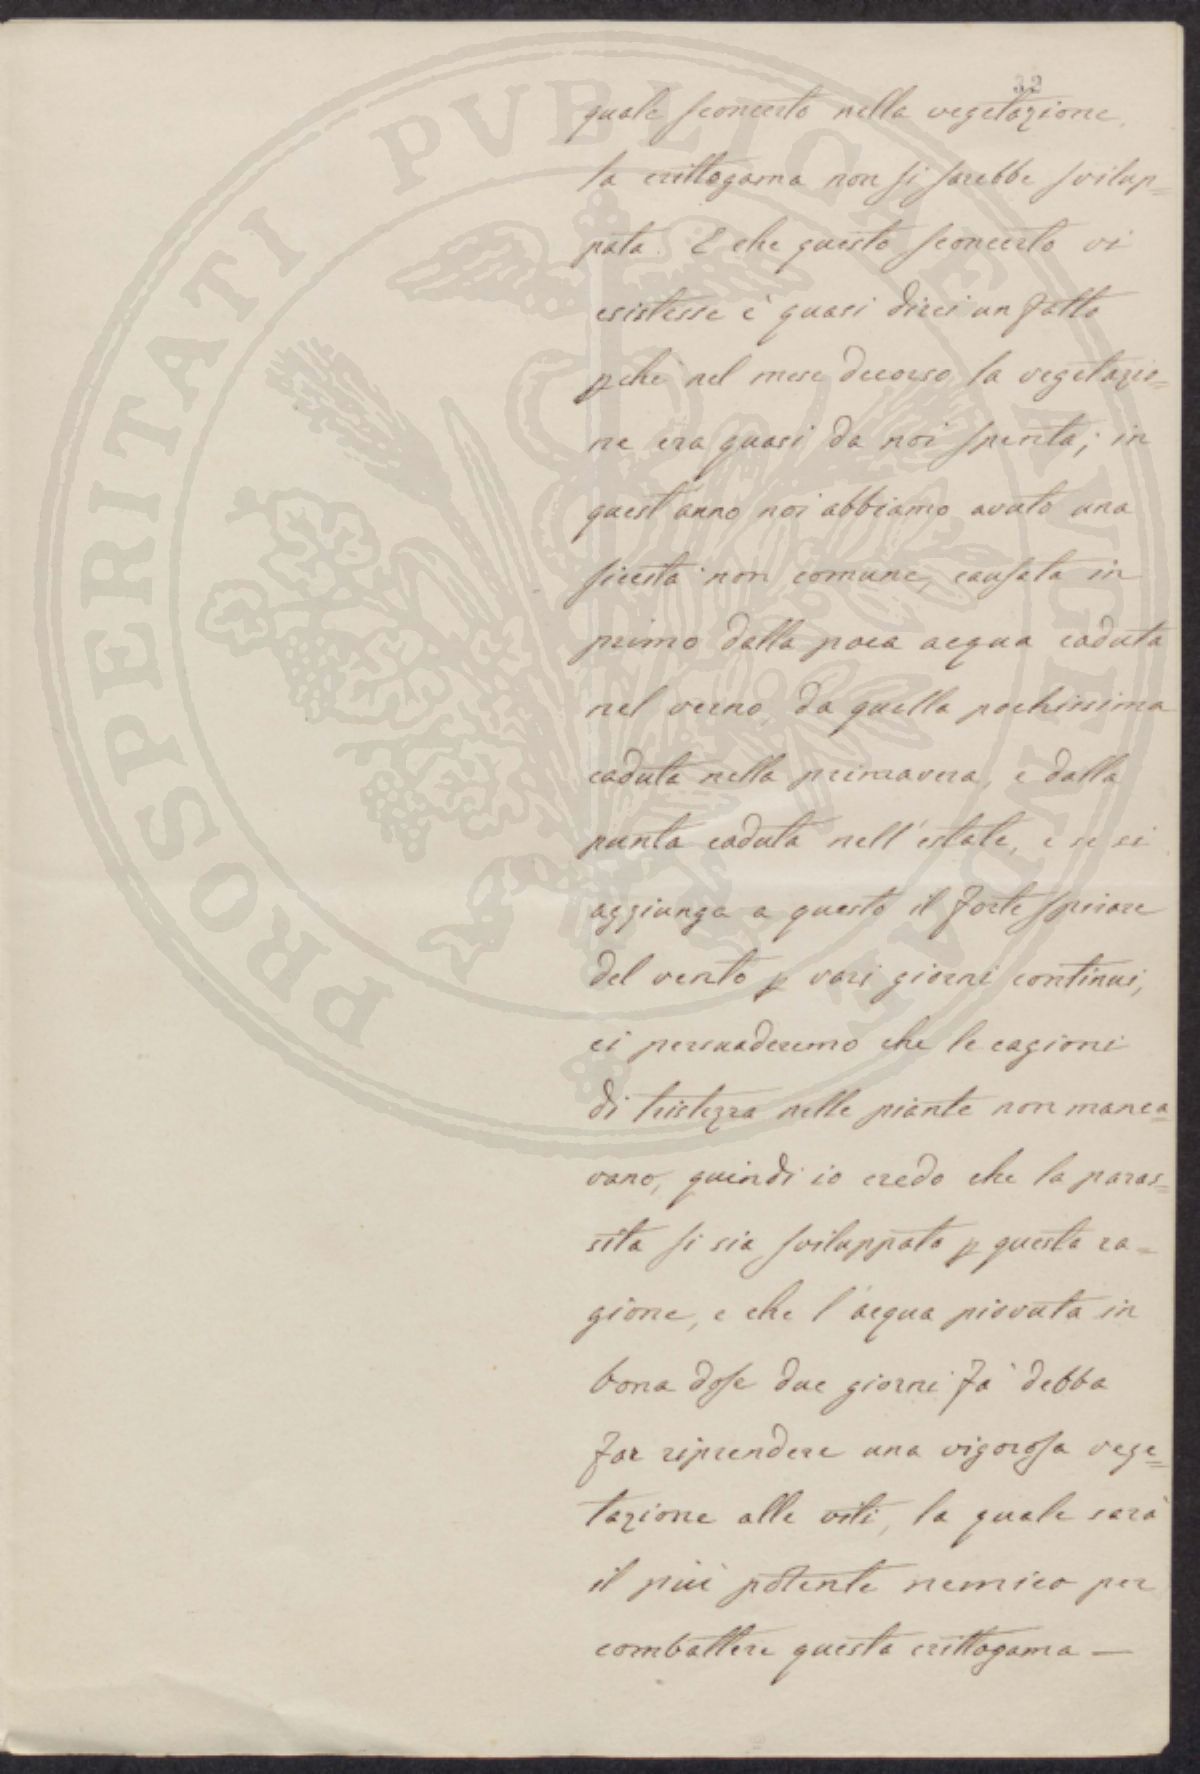 32
quale sconcerto nella vegetazione,
la crittogama non si sarebbe svilup=
pata. E che questo sconcerto vi
esistesse è quasi direi un fatto
pchè nel mese decorso la vegetazio=
ne era quasi da noi spenta; in
quest'anno noi abbiamo avuto una
siccità non comune, causata in
primo dalla poca acqua caduta
nel verno, da quella pochissima
caduta nella primavera, e dalla
punta caduta nell'estate, e se si
aggiunga a questo il forte spirare
del vento p vari giorni continui,
ci persuaderemo che le cagioni
di tristezza nelle piante non manca=
vano, quindi io credo che la paras=
sita si sia sviluppata p questa ra=
gione, e che l'acqua piovuta in
bona dose due giorni fà debba
far riprendere una vigorosa vege=
tazione alle viti, la quale sarà
il più potente nemico per
combattere questa crittogama —
PROSPERITATI PVBLICAE AVGENDAE